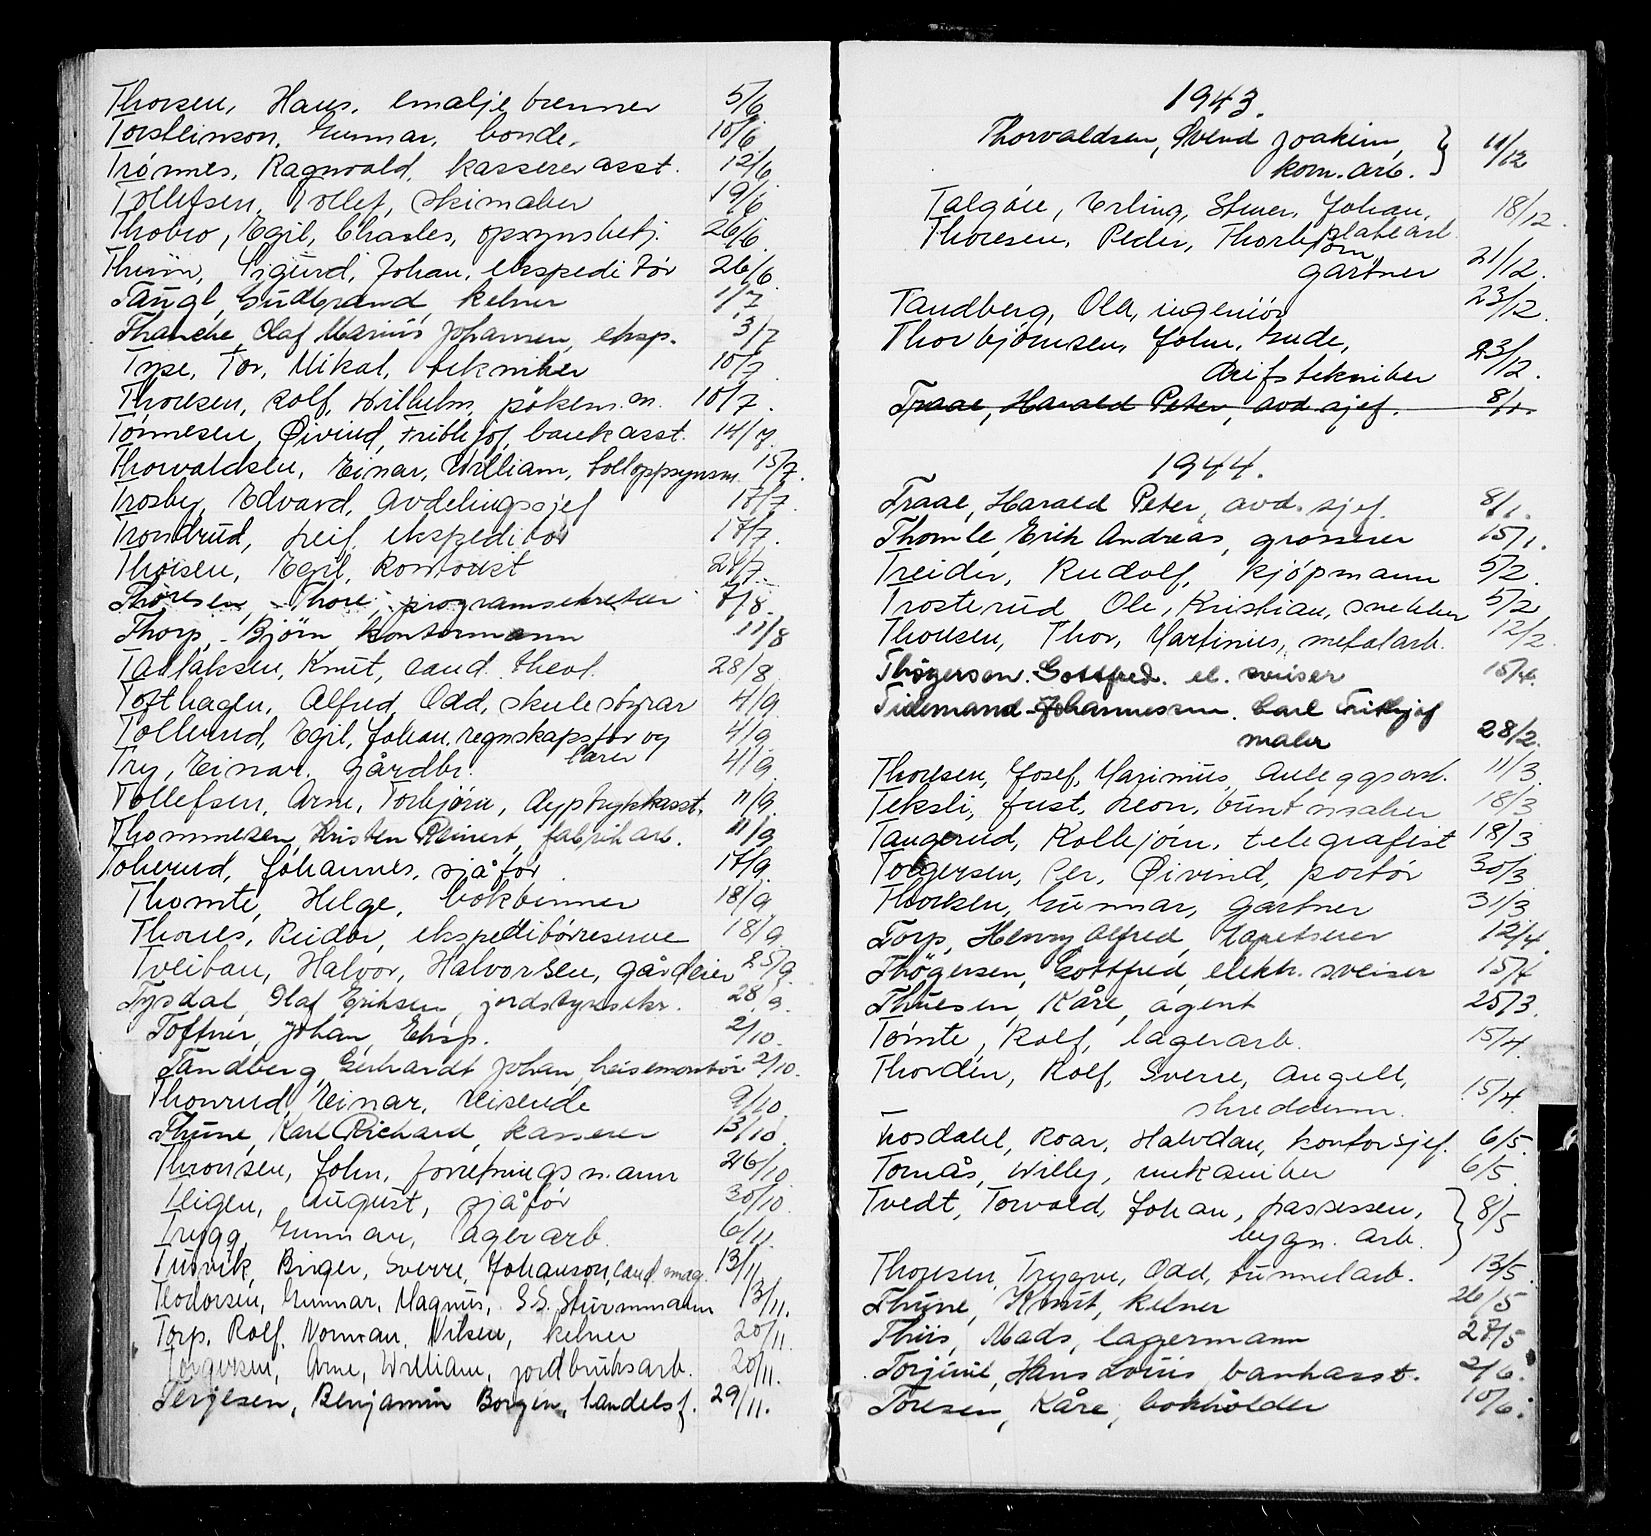 Thorsen, Hans, emaljebrenner 5/6
Torsteinson, Gunnar, bonde, 10/6
Trönnes, Ragnvald, kasserer asst. 12/6
Tollefsen, Tollef, skimaker 19/6
Thobro, Egil, Charles, opsynsbetj. 26/6
Thurn, Sigurd, Johan, ekspeditör 26/6
Taugl, Gudbrand, kelner 1/7
Thanche, Olaf Marius Johansen, eksp. 3/7
Type, Tor, Mikal, tekniker 10/7
Thoresen, Rolf, Wilhelm, 10/7.
Tönnesen, Øivind, Frithjof, bankasst. 14/7
Thorvaldsen, Einar, William, tolloppsynsm. 15/7.
Trosby, Edvard, Avdelingssjef 17/7
Trondrud, Leif, ekspeditör 17/7.
Thoresen, Egil, Kontorist 24/7.
Thoresen, Thore, programsekretær 7/8.
Thorp, Bjørn kontormann 11/8
Tallaksen, Knut, cand. theol. 28/8
Tofthagen, Alfred, Odd, skulestyrar 4/9
Tollerud, Egil, Johan, regnskapsför og 4/9
lærer
Try, Einar, Gårdbr. 4/9
Tollefsen, Arne, Torbjörn, dyptrykkasst. 11/9.
Thommesen, Kristen Reinert, fabrikarb. 11/9
Toherud, Johannes, sjåför 17/9.
Thomte, Helge, bokbinner 18/9
Thones, Reidar, ekspeditörreserve 18/9
Tveitan, Halvor, Halvorsen, gårdeier 25/9.
Tysdal, Olaf Eriksen, jordstyresekr. 28/9.
Toftner, Johan, Eksp. 2/10.
Tandberg, Gerhardt Johan, heisemontör 2/10.
Thonrud, Einar, reisende 9/10.
Thune, Karl Richard, kasserer 13/10
Thronsen, John, forretningsmann 26/10
Tligen, August, sjåför 30/10
Trygg, Gunnar, lagerarb. 6/11
Tusvik, Birger, Sverre, Johanson, cand. mag. 13/11
Teodorsen, Gunnar, Magnus, S.S. Sturmmann 13/11.
Torp, Rolf, Norman, Nilsen, kelner 20/11.
Torgersen, Arne, William, jordbruksarb. 20/11.
Terjesen, Benjamin Borgen, landelsf. 29/11.
1943.
Thorvaldsen, Øvend Joakim, } 11/12
kom. arb.
Talgöie, Erling, Stener, Johan, 18/12.
platearb.
Thoresen, Peder, Thorbjörn,
gartner 21/12.
Tandberg, Ola, ingeniör 23/12.
Thorbjörnsen, John, Gude,
driftstekniker 23/12.
Traae, Harald Peter, avd. sjef. 8/1.
1944.
Traae, Harald Peter, avd. sjef. 8/1.
Thomle, Erik Andreas, grosserer 15/1.
Treider, Rudolf, kjöpmann 5/2.
Trosterud, Ole, Kristian, snekker 5/2
Thoresen, Thor, Martinius, metalarb. 12/2.
Thögersen, Gottfred. el. sveiser 15/4.
Tidemand-Johannessen. Carl Frithjof
maler 28/2.
Thoresen, Josef, Marinius, anleggsarb. 11/3
Teksli, Just, Leon, buntmaker 18/3
Tangerud, Kolbjörn, telegrafist 18/3
Torgersen, Per, Øivind, portör 30/3
Thoresen, Gunnar, gartner 31/3
Torp, Henry Alfred, tapetserer 12/4.
Thögersen, Gottfred, elektr. sveiser 15/4
Thuesen, Kåre, agent 25/3.
Tömte, Rolf, lagerarb. 15/4.
Thordin, Rolf, Sverre, Angell,
skredderm. 15/4.
Trosdahl, Roar, Halvdan, kontorsjef. 6/5.
Tomås, Willy, mekaniker 6/5.
Tvedt, Torvald, Johan, } 8/5
bygn. arb.
Thoresen, Trygve, Odd, tunnelarb. 13/5.
Thune, Knut, kelner 26/5
Thiis, Mads, lagermann 27/5
Torjusil, Hans Louis, bankasst. 2/6.
Toresen, Kåre, bokholder 10/6.